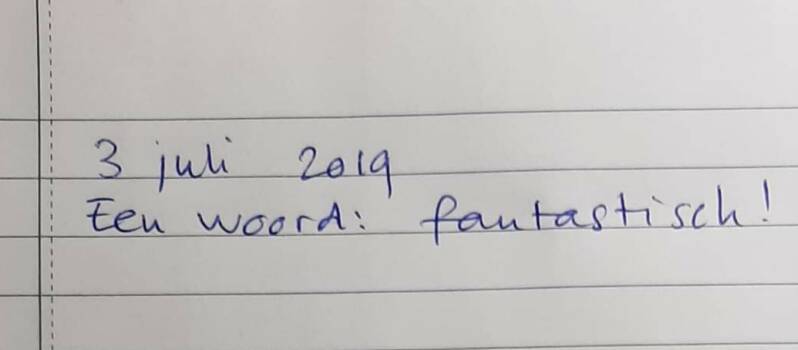 3 juli 2019
Een woord: fantastisch!